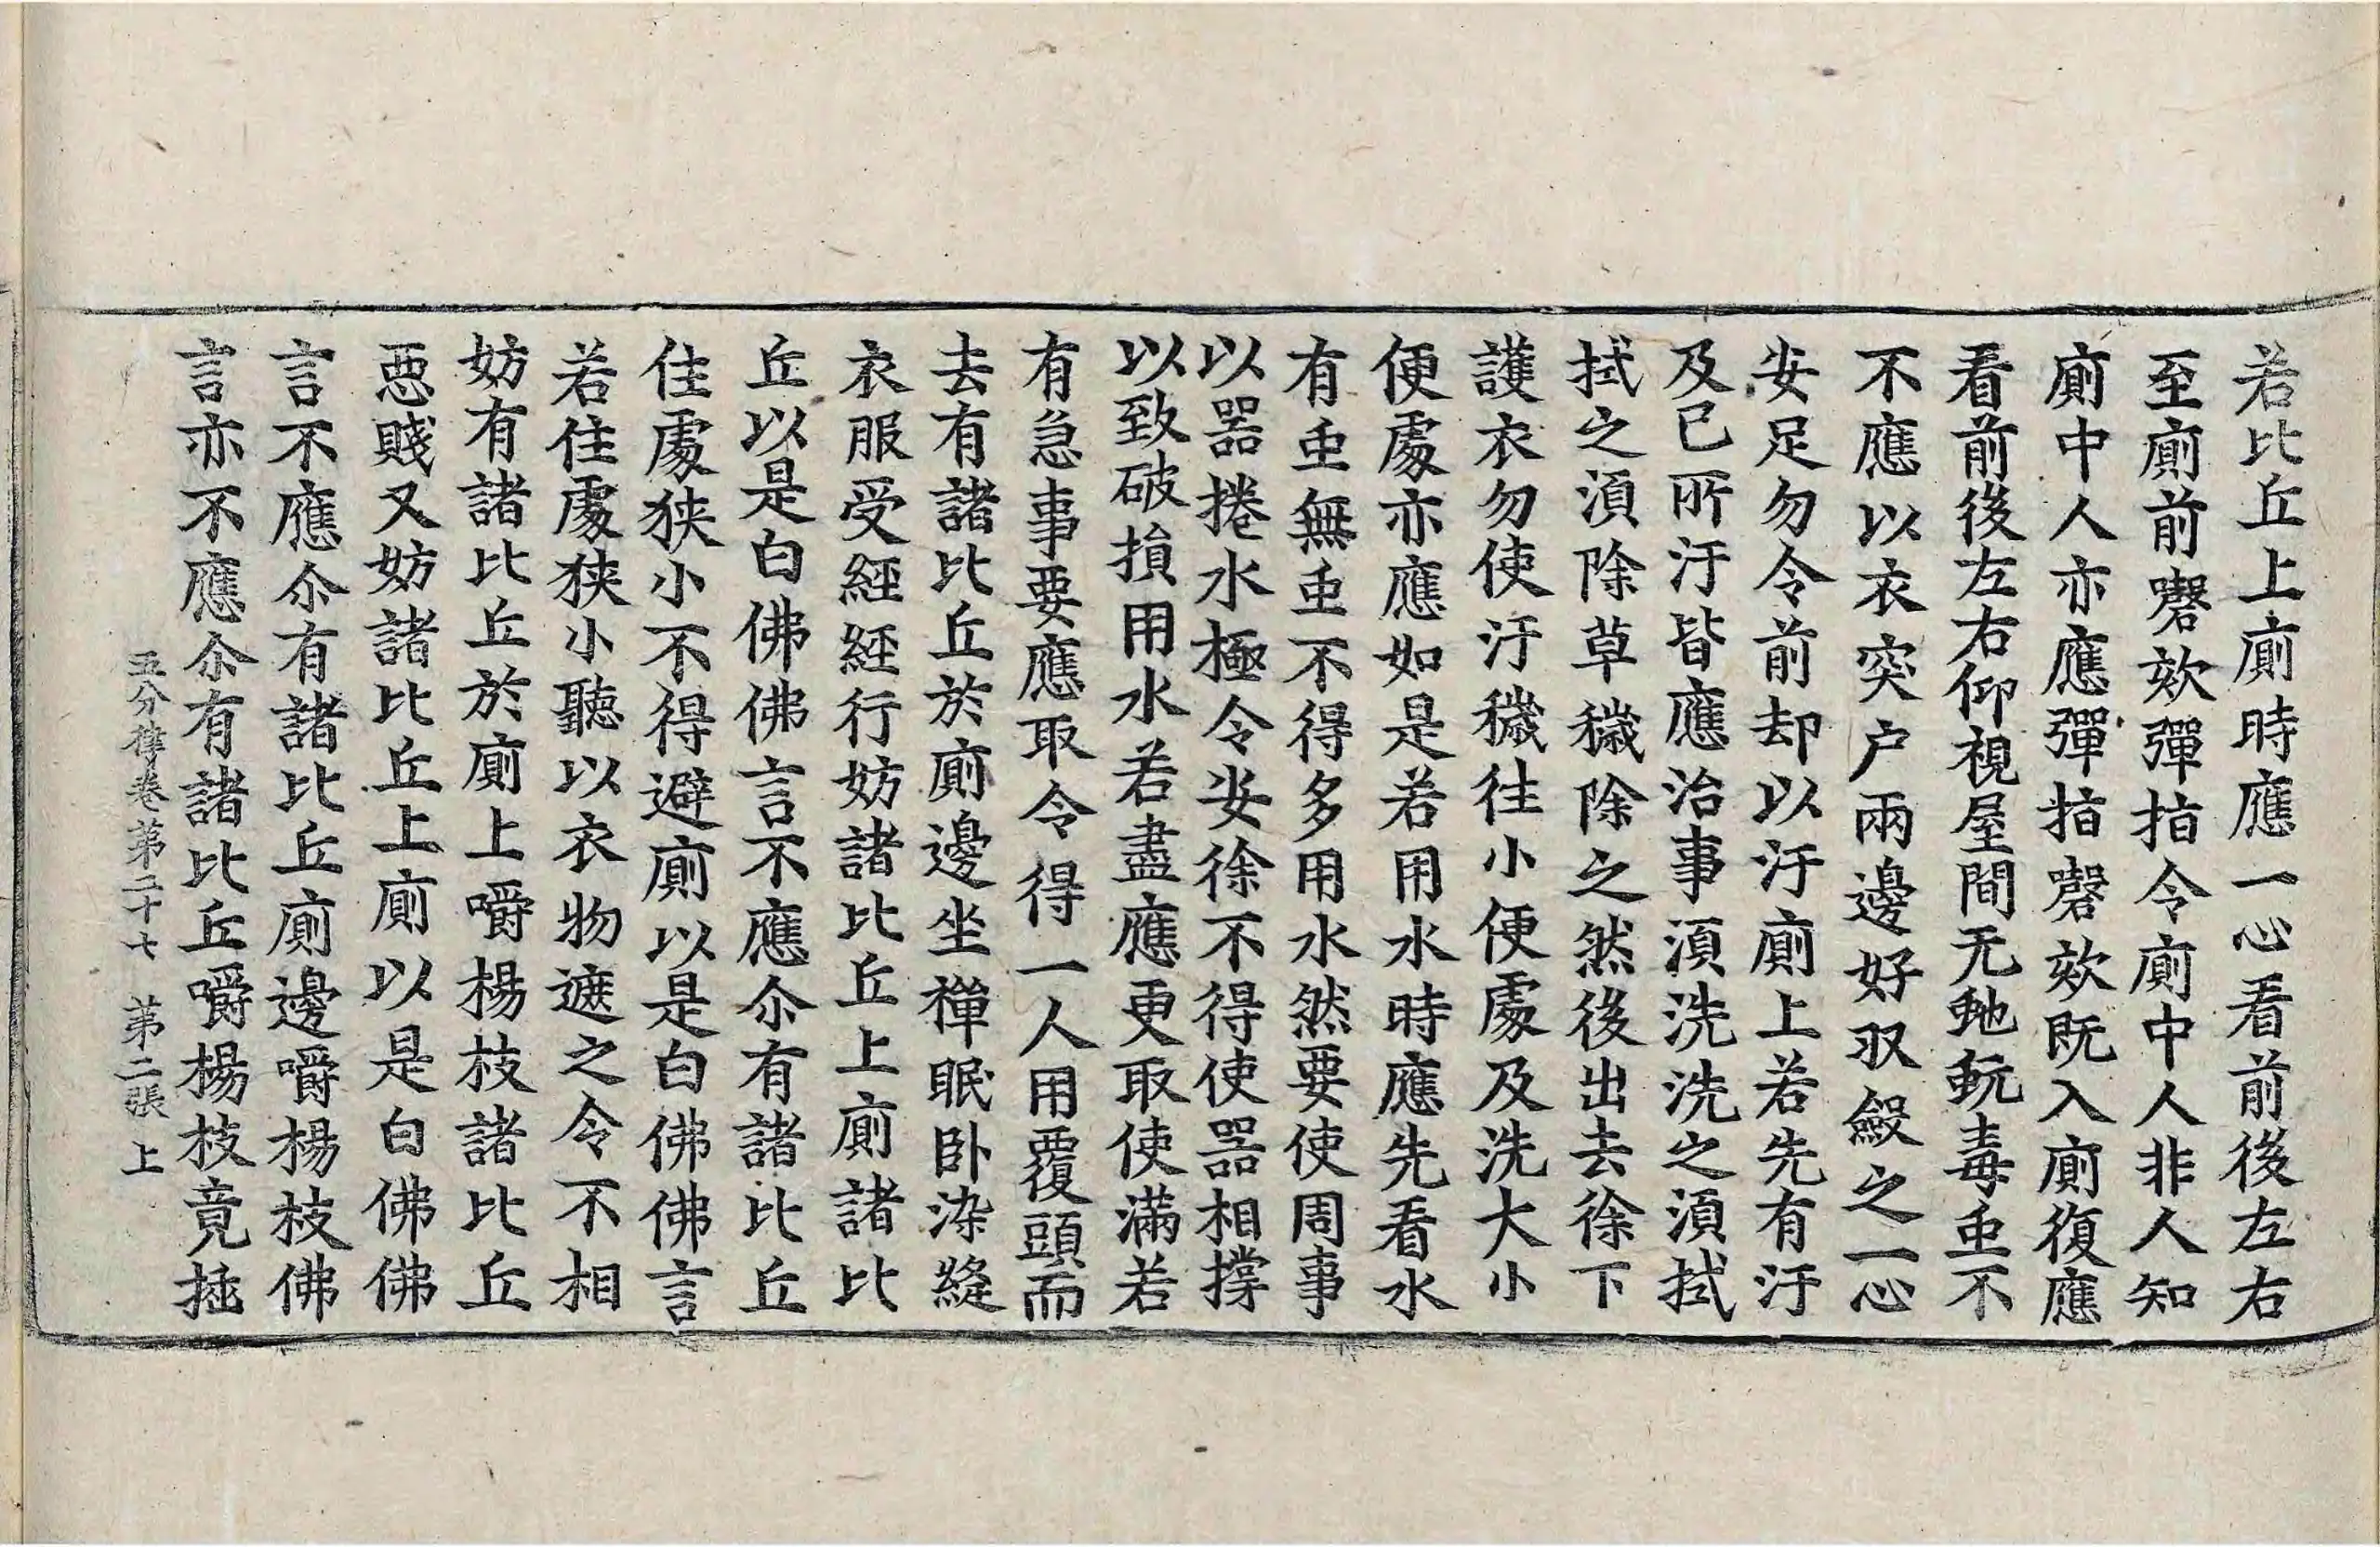 若比丘上廁時應一心看前後左右
至廁前謦欬彈指令廁中人非人知
廁中人亦應彈指謦欬既入廁復應
看前後左右仰視屋間无虵蚖毒䖝不
不應以衣突户兩邊好収斂之一心
安足勿令前却以汙廁上若先有汙
及已所汙皆應治事湏洗洗之湏拭
拭之湏除草穢除之然後出去徐下
護衣勿使汙穢往小便處及洗大小
便處亦應如是若用水時應先看水
有䖝無䖝不得多用水然要使周事
以器捲水極令安徐不得使器相撐
以致破損用水若盡應更取使滿若
有急事要應取令得一人用覆頭而
去有諸比丘於廁邊坐禪眠卧染縫
衣服受經經行妨諸比丘上廁諸比
丘以是白佛佛言不應尒有諸比丘
住處狹小不得避廁以是白佛佛言
若住處狹小聽以衣物遮之令不相
妨有諸比丘於廁上嚼楊枝諸比丘
惡賤又妨諸比丘上廁以是白佛佛
言不應尒有諸比丘廁邊嚼楊枝佛
言亦不應尒有諸比丘嚼楊枝竟挿
五分律卷第二十七　第二張　上